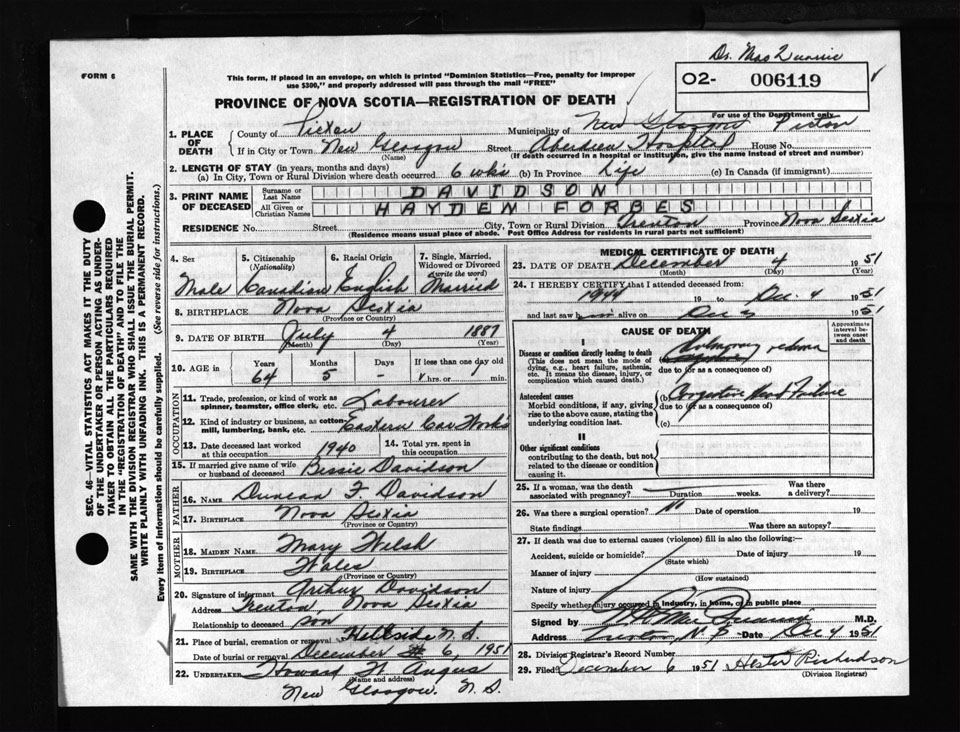 Dr. MacQuarrie
FORM 6
This form, if placed in an envelope, on which is printed "Dominion Statistics—Free, penalty for improper
use $300," and properly addressed will pass through the mail "FREE"
O2- 006119
For use of the Department only
PROVINCE OF NOVA SCOTIA—REGISTRATION OF DEATH
1. PLACE OF DEATH { County of Pictou Municipality of New Glasgow Pictou
If in City or Town New Glasgow Street Aberdeen Hospital House No.
(Name) (If death occurred in a hospital or institution, give the name instead of street and number)
2. LENGTH OF STAY (in years, months and days)
(a) In City, Town or Rural Division where death occurred 6 wks (b) In Province Life (c) In Canada (if immigrant)
3. PRINT NAME OF DECEASED { Surname or Last Name DAVIDSON
All Given or Christian Names HAYDEN FORBES
RESIDENCE No. Street City, Town or Rural Division Trenton Province Nova Scotia
(Residence means usual place of abode. Post Office Address for residents in rural parts not sufficient)
4. Sex 5. Citizenship (Nationality) 6. Racial Origin 7. Single, Married, Widowed or Divorced (write the word)
Male Canadian English Married
8. BIRTHPLACE Nova Scotia
(Province or Country)
9. DATE OF BIRTH July 4 1887
(Month) (Day) (Year)
10. AGE in Years Months Days If less than one day old
64 5 - hrs. or min.
OCCUPATION
11. Trade, profession, or kind of work as spinner, teamster, office clerk, etc. Labourer
12. Kind of industry or business, as cotton-mill, lumbering, bank, etc. Eastern Car Works
13. Date deceased last worked at this occupation 1940 14. Total yrs. spent in this occupation
15. If married give name of wife or husband of deceased Bessie Davidson
FATHER
16. NAME Duncan F. Davidson
17. BIRTHPLACE Nova Scotia
(Province or Country)
MOTHER
18. MAIDEN NAME Mary Welsh
19. BIRTHPLACE Wales
(Province or Country)
20. Signature of informant Arthur Davidson
Address Trenton, Nova Scotia
Relationship to deceased son
21. Place of burial, cremation or removal Hillside N.S.
Date of burial or removal December 6, 1951
22. UNDERTAKER Howard W. Angus
(Name and address)
New Glasgow. N.S.
MEDICAL CERTIFICATE OF DEATH
23. DATE OF DEATH December 4 1951
(Month) (Day) (Year)
24. I HEREBY CERTIFY that I attended deceased from:
1944 19 to Dec. 4 1951
and last saw him alive on Dec 3 1951
CAUSE OF DEATH Approximate interval between onset and death
I
Disease or condition directly leading to death
(This does not mean the mode of dying, e.g., heart failure, asthenia, etc. It means the disease, injury, or complication which caused death.)
(a) Pulmonary oedema
due to (or as a consequence of)
Antecedent causes
Morbid conditions, if any, giving rise to the above cause, stating the underlying condition last.
(b) Congestive Heart Failure
due to (or as a consequence of)
(c)
II
Other significant conditions
contributing to the death, but not related to the disease or condition causing it.
25. If a woman, was the death associated with pregnancy? Duration weeks. Was there a delivery?
26. Was there a surgical operation? No Date of operation 19
State findings Was there an autopsy?
27. If death was due to external causes (violence) fill in also the following:—
Accident, suicide or homicide? Date of injury 19
(State which)
Manner of injury
(How sustained)
Nature of injury
Specify whether injury occurred in industry, in home, or in public place
Signed by M.D.
Address Trenton N.S. Date Dec 4 1951
28. Division Registrar's Record Number
29. Filed December 6 1951 Hester Richardson
(Division Registrar)
SEC. 46—VITAL STATISTICS ACT MAKES IT THE DUTY
OF THE UNDERTAKER OR PERSON ACTING AS UNDER-
TAKER "TO OBTAIN ALL THE PARTICULARS REQUIRED
IN THE "REGISTRATION OF DEATH" AND TO FILE THE
SAME WITH THE DIVISION REGISTRAR WHO SHALL ISSUE THE BURIAL PERMIT.
WRITE PLAINLY WITH UNFADING INK. THIS IS A PERMANENT RECORD.
Every item of information should be carefully supplied. (See reverse side for instructions.)